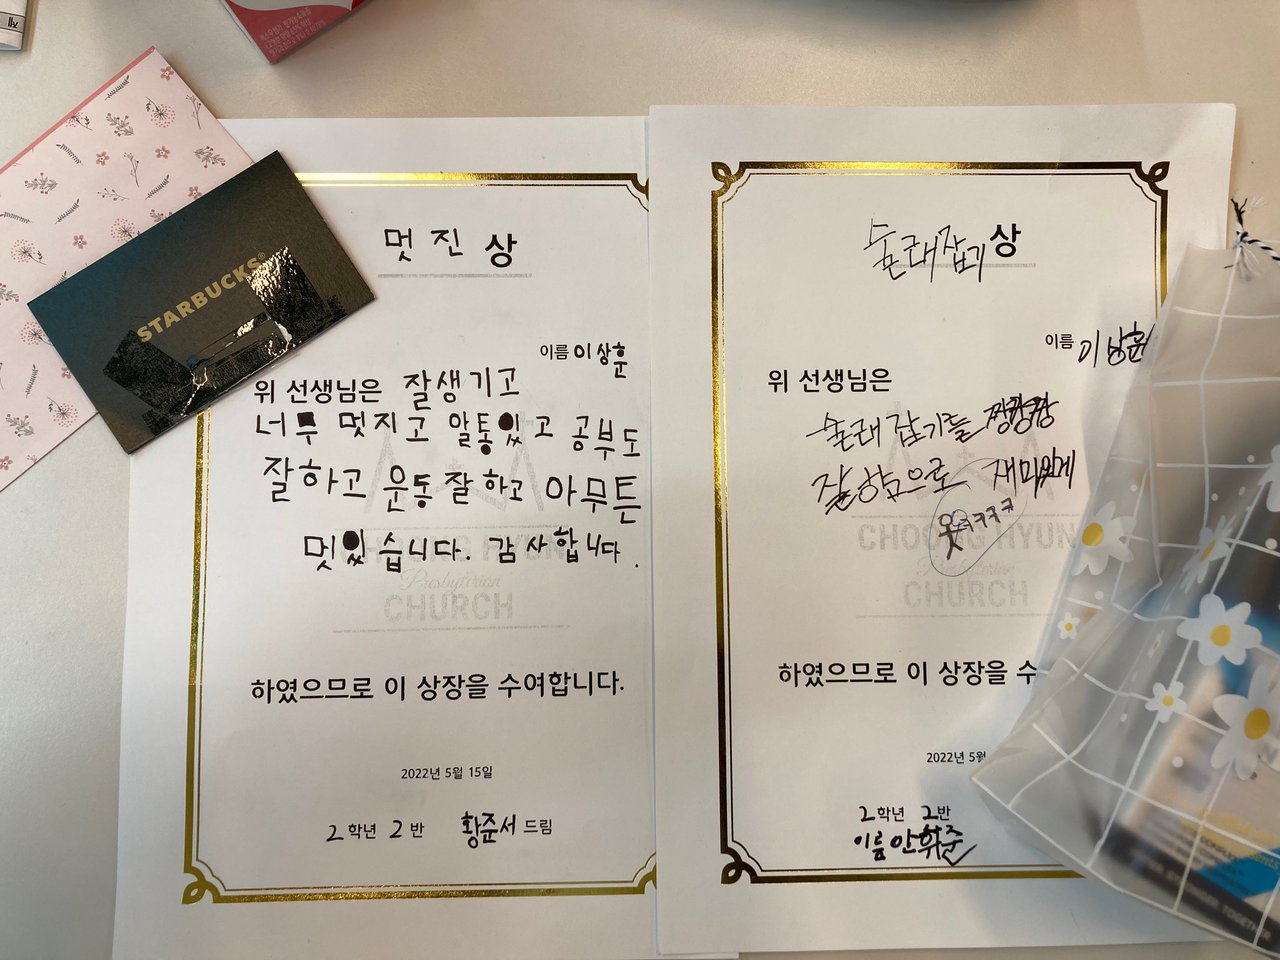 STARBUCKS
멋진 상
이름 이상훈
위 선생님은 잘생기고
너무 멋지고 알통있고 공부도
잘하고 운동 잘하고 아무튼
멋있습니다. 감사합니다.
CHOONG HYUN
Presbyterian
CHURCH
하였으므로 이 상장을 수여합니다.
2022년 5월 15일
2학년 2반 황준서 드림
술래잡기상
이름 이상훈
위 선생님은
술래잡기를 짱짱짱
잘함으로 재미있게
CHOONG HYUN
Presbyterian
CHURCH
하였으므로 이 상장을 수
2022년 5월
2학년 2반
이름 안휘준